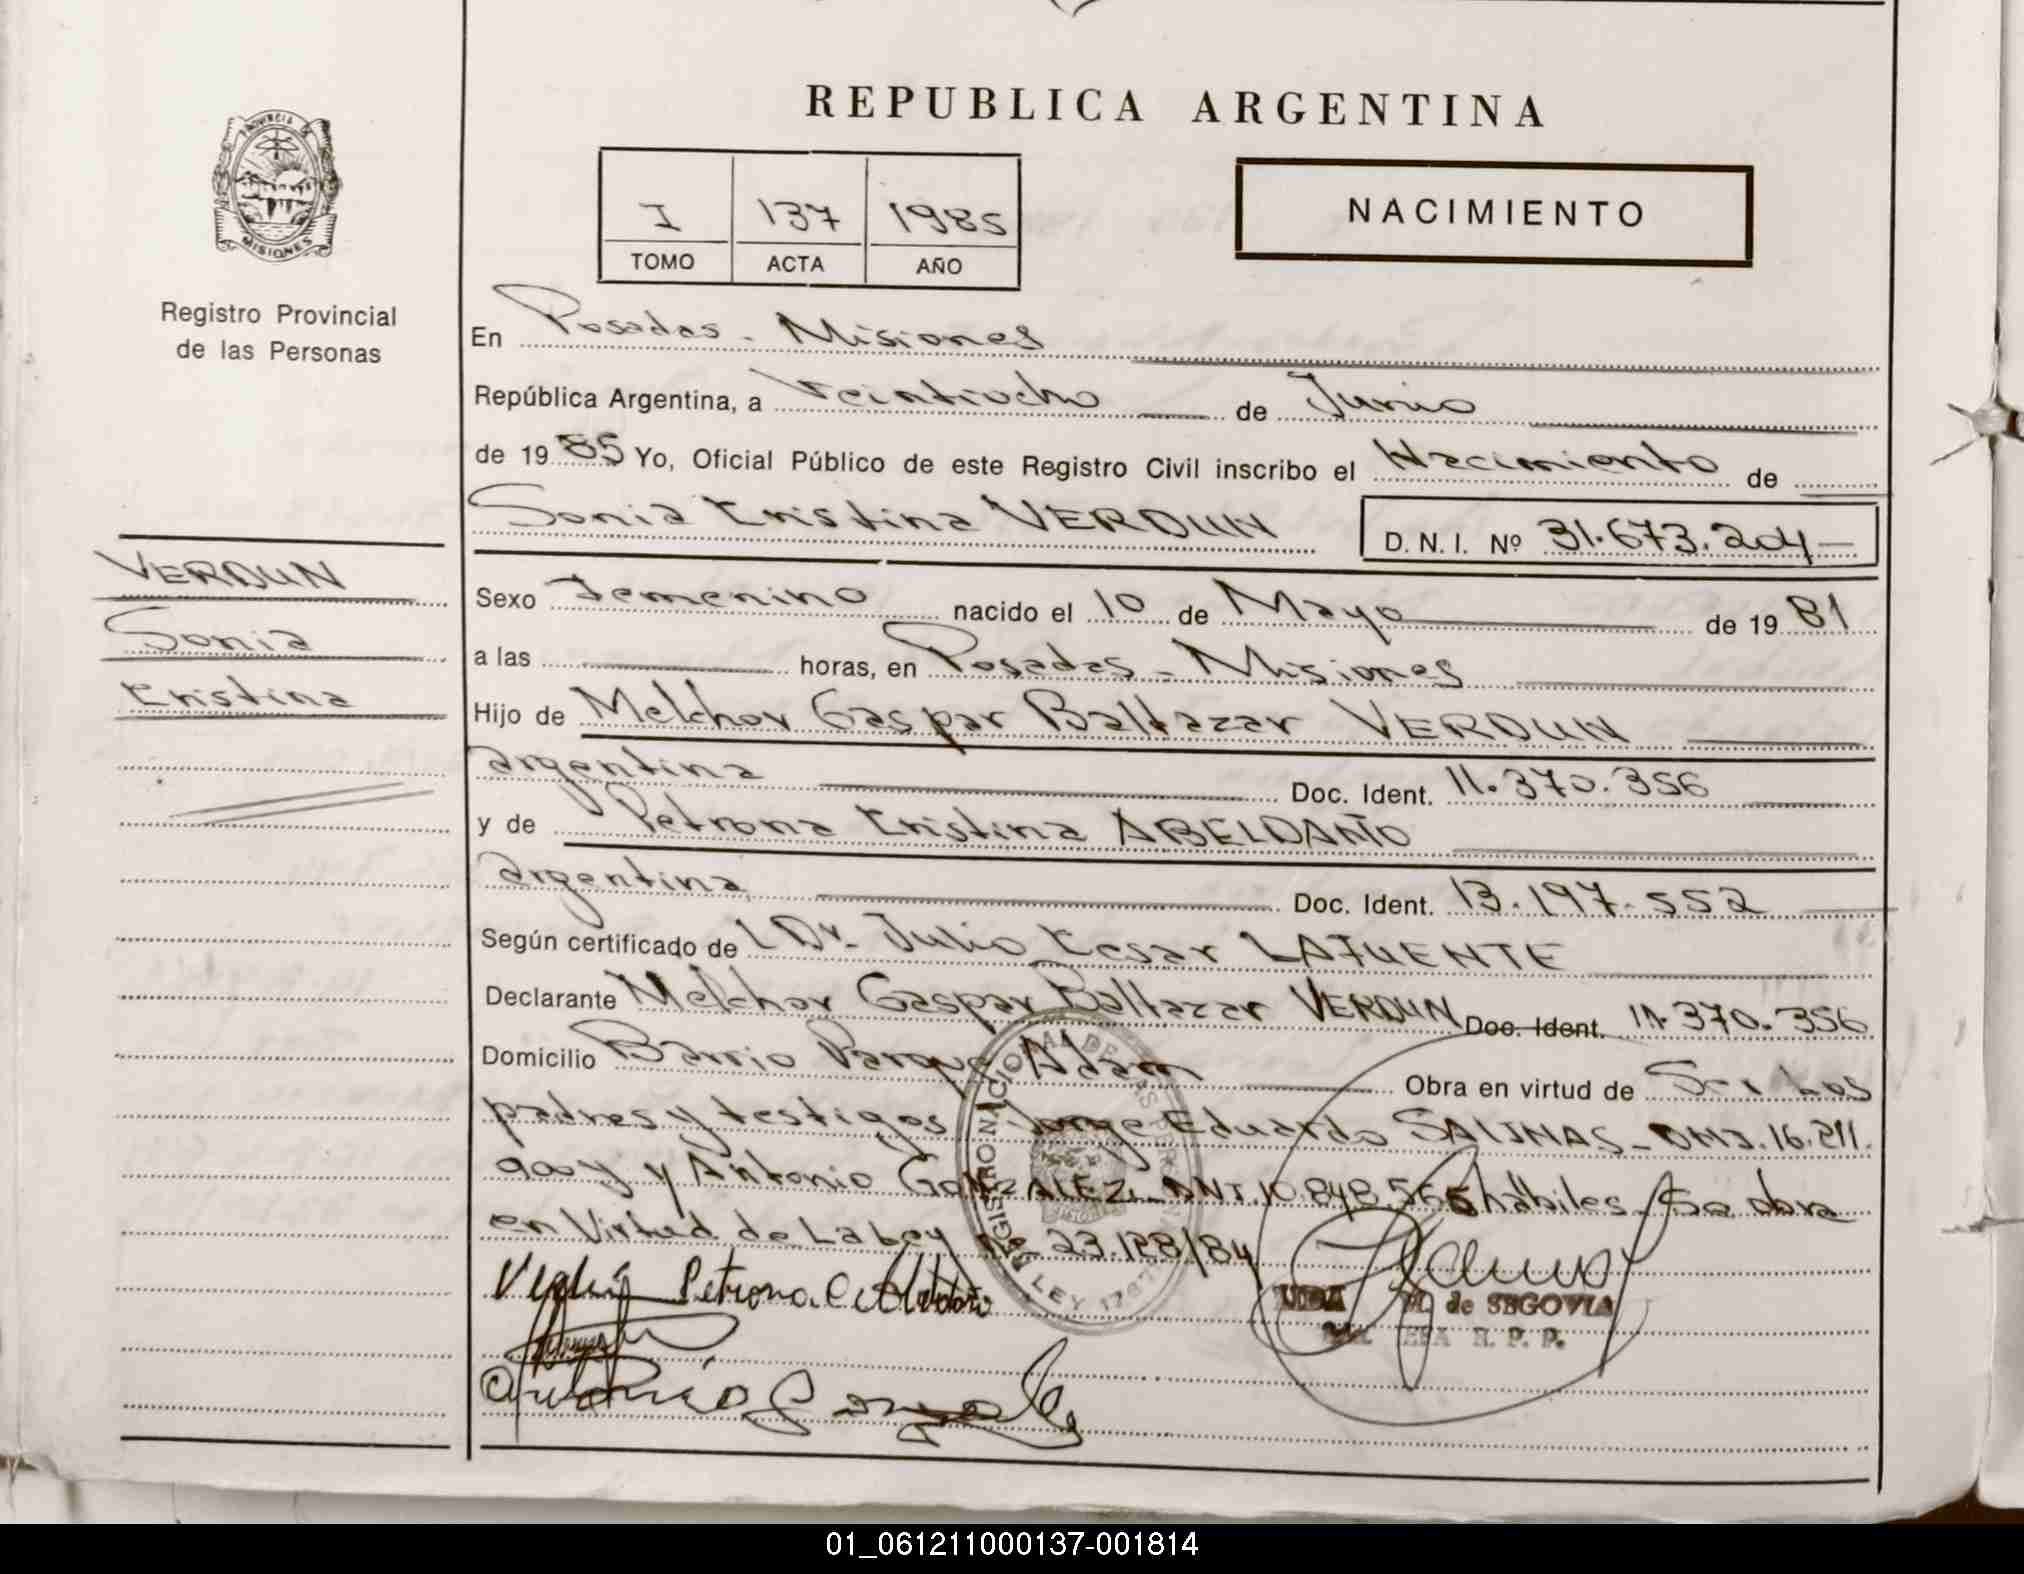 REPUBLICA ARGENTINA
PROVINCIA DE MISIONES
Registro Provincial
de las Personas
I 137 1985
TOMO ACTA AÑO
NACIMIENTO
En Posadas - Misiones
República Argentina, a Veintiocho de Junio
de 1985 Yo, Oficial Público de este Registro Civil inscribo el Nacimiento de
Sonia Cristina VERDUN D.N.I. Nº 31.673.204
VERDUN
Sonia
Cristina
Sexo Femenino nacido el 10 de Mayo de 1981
a las horas, en Posadas - Misiones
Hijo de Melchor Gaspar Baltazar VERDUN
argentina Doc. Ident. 11.370.356
y de Petrona Cristina
argentina Doc. Ident. 13.197.552
Según certificado de Dr. Julio Cesar LAFUENTE
Declarante Melchor Gaspar Baltazar VERDUN Doc. Ident. 11.370.356
Domicilio Barrio Parque Adam Obra en virtud de Ser los
padres y testigos Jorge Eduardo SALINAS - DNI. 16.211.
y Antonio GONZALEZ - DNI. 10.848.565 hábiles. Se obra
en Virtud de La Ley Nº 23.128/84
REGISTRO NACIONAL DE LAS PERSONAS
LEY
Petrona C
M. de SEGOVIA
R. P. P.
Antonio Gonzalez
01_061211000137-001814